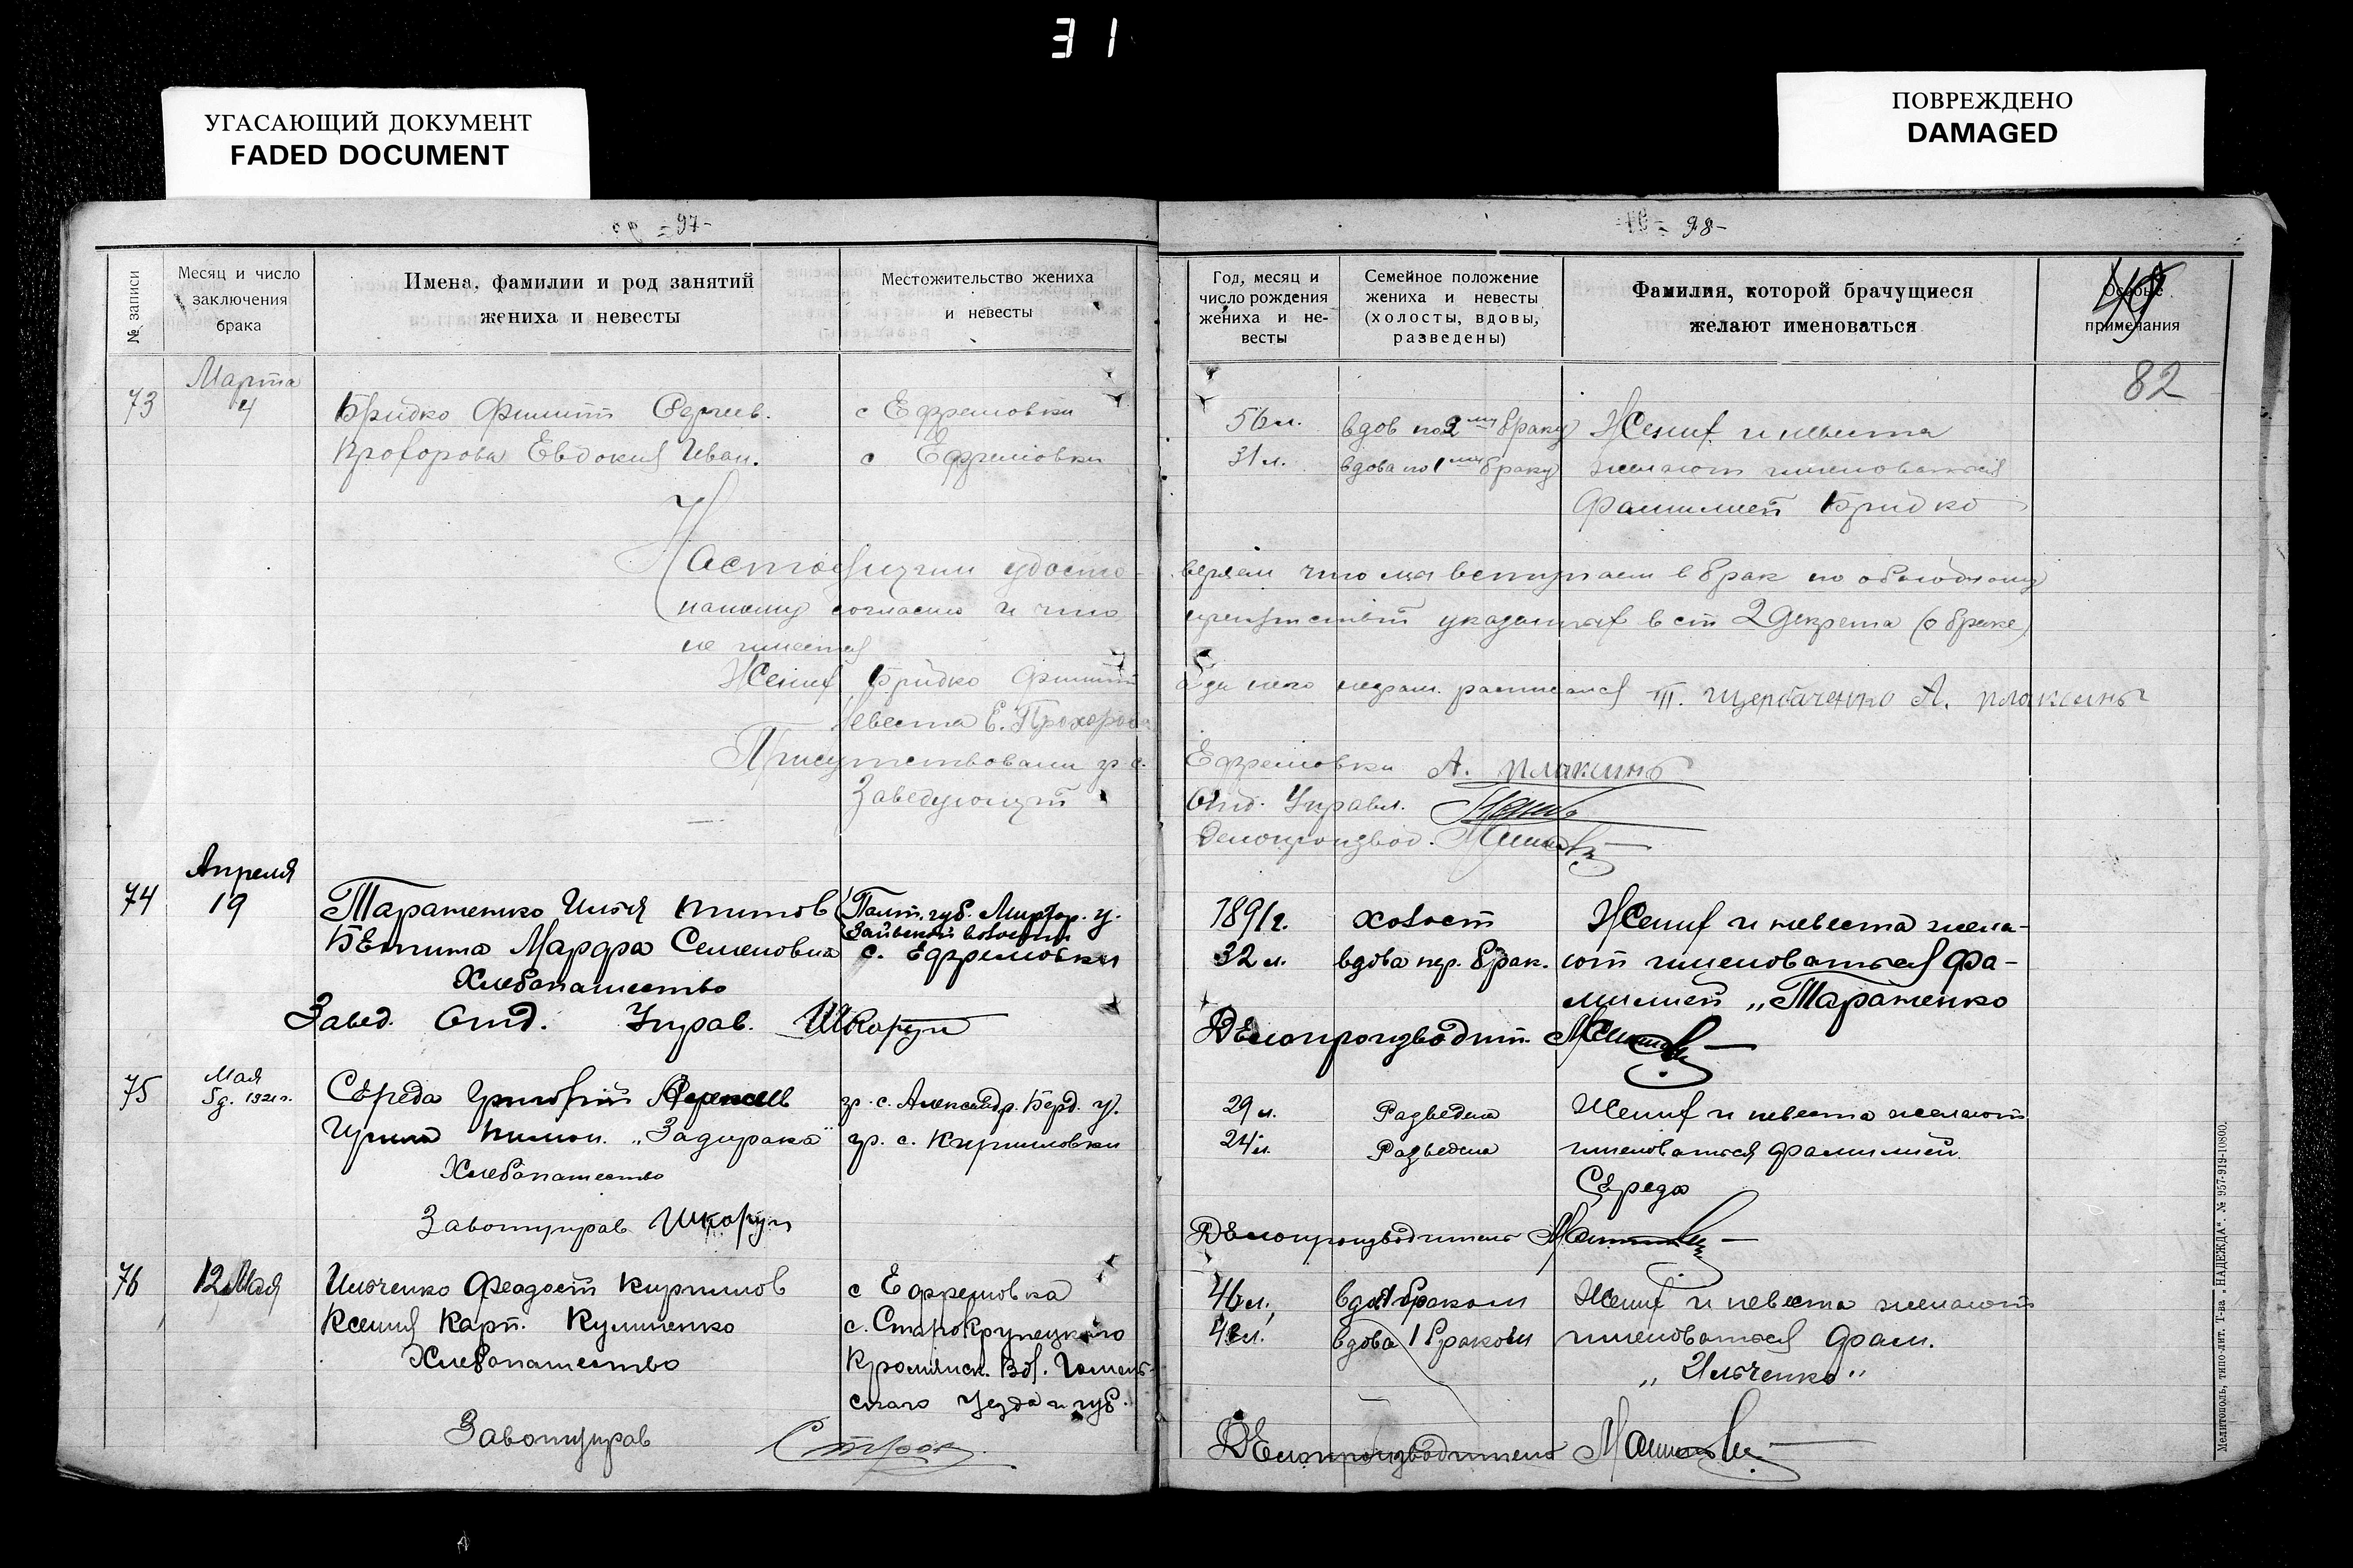 31
УГАСАЮЩИЙ ДОКУМЕНТ
FADED DOCUMENT
ПОВРЕЖДЕНО
DAMAGED
-97-
№ записи
Месяц и число заключения брака
Имена, фамилии и род занятий жениха и невесты
Местожительство жениха и невесты
Марта
73
4
Бридко Филипп Сергеев.
с Ефремовки
Прохорова Евдокия Иван.
с Ефремовки
Настоящим удосто-
нашему согласию и что
не имеется
Жених Бридко Филипп
Невеста Е. Прохорова
Присутствовали гр. с.
Заведующий
Апреля
74
19
Тараненко Илья Титов
Полт. губ. Миргор. у.
волости
Марфа Семеновна
с. Ефремовки
Хлебопашество
Завед. Отд. Управ. Шкорун
75
Мая
5 д. 1921 г.
Середа Григорий
гр. с. Александр. Берд. у.
"Задирака"
гр. с. Кирилловки
Хлебопашество
Завотуправ Шкорун
76
12 Мая
Ильченко Феадосий Кирилов
с Ефремовка
Ксения Карп. Кулиненко
с.
Хлебопашество
Вол. Гомель-
ского Уезда и губ.
Завотуправ
-98-
Год, месяц и число рождения жениха и не-
весты
Семейное положение жениха и невесты (холосты, вдовы, разведены)
Фамилия, которой брачущиеся желают именоваться
Особые примечания
49
82
56 л.
вдов по 2му браку
Жених и невеста
31 л.
вдова по 1му браку
желают именоваться
фамилией Бридко
веряем что мы вступаем в брак по обоюдному
препятствий указанных в ст 2 декрета (о браке)
расписался Т. Щербаченко А. Плаксинъ
Ефремовки А. Плаксинъ
Отд. Управл.
Делопроизвод.
1891 г.
холост
Жених и невеста жела-
32 л.
вдова пер. брак.
ют именоваться фа-
милией „Тараненко
Делопроизводит.
29 л.
Разведен
Жених и невеста желают
24 л.
Разведена
именоваться фамилией
Середа
Делопроизводитель
46 л.
Жених и невеста желают
вдова 1 браком
именоваться фам.
„Ильченко"
Делопроизводитель
Мелитополь, типо-лит. Т-ва „НАДЕЖДА". № 957-919-10800.